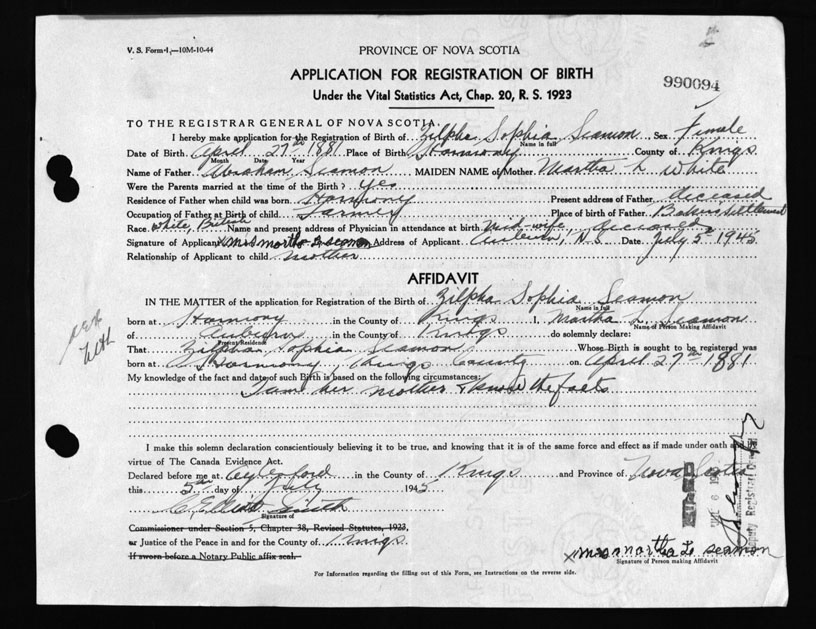 V. S. Form 1,—10M-10-44
PROVINCE OF NOVA SCOTIA
APPLICATION FOR REGISTRATION OF BIRTH
990094
Under the Vital Statistics Act, Chap. 20, R. S. 1923
TO THE REGISTRAR GENERAL OF NOVA SCOTIA:
I hereby make application for the Registration of Birth of Zilpha Sophia Seamon Sex Female
Name in full
Date of Birth April 27th 1881 Place of Birth Harmony County of Kings
Month Date Year
Name of Father Abraham Seamon MAIDEN NAME of Mother Martha L White
Were the Parents married at the time of the Birth? Yes
Residence of Father when child was born Harmony Present address of Father deceased
Occupation of Father at Birth of child Farmer Place of birth of Father
Race White, British Name and present address of Physician in attendance at birth Mid-wife, deceased
Signature of Applicant x mrs martha L seamon Address of Applicant Auburn, N.S. Date July 5th 1945
Relationship of Applicant to child mother
AFFIDAVIT
IN THE MATTER of the application for Registration of the Birth of Zilpha Sophia Seamon
Name in full
born at Harmony in the County of Kings I, Martha L. Seamon
Name of Person Making Affidavit
of Auburn in the County of Kings do solemnly declare:
Present Residence
That Zilpha Sophia Seamon Whose Birth is sought to be registered was
born at Harmony, Kings County on April 27th 1881
My knowledge of the fact and date of such Birth is based on the following circumstances:
I am her mother & know the facts
I make this solemn declaration conscientiously believing it to be true, and knowing that it is of the same force and effect as if made under oath and by
virtue of The Canada Evidence Act.
Declared before me at Aylesford in the County of Kings and Province of Nova Scotia
this 5th day of July 1945
Smith
Signature of
Commissioner under Section 5, Chapter 38, Revised Statutes, 1923,
or Justice of the Peace in and for the County of Kings
If sworn before a Notary Public affix seal.
x mrs martha L seamon
Signature of Person making Affidavit
For Information regarding the filling out of this Form, see Instructions on the reverse side.